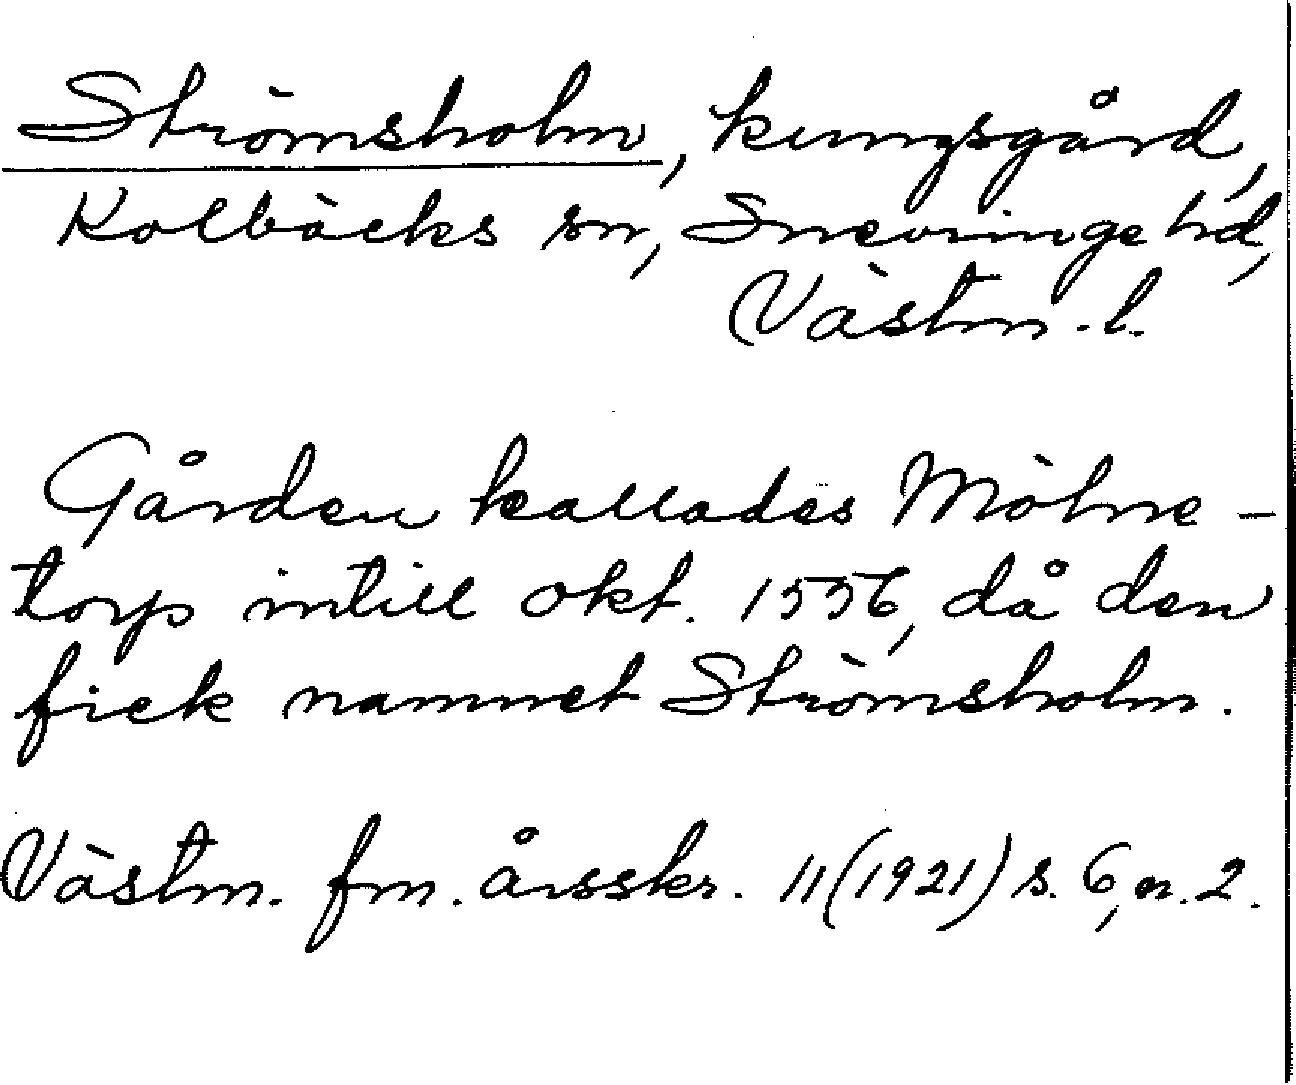 Strömsholm, kungsgård,
Kolbäcks sn, Snevringe hd,
Västm. l.
Gården kallades Möhne-
torp intill okt. 1556, då den
fick namnet Strömsholm.
Västm. fm. årsskr. 11 (1921) s. 6, n. 2.